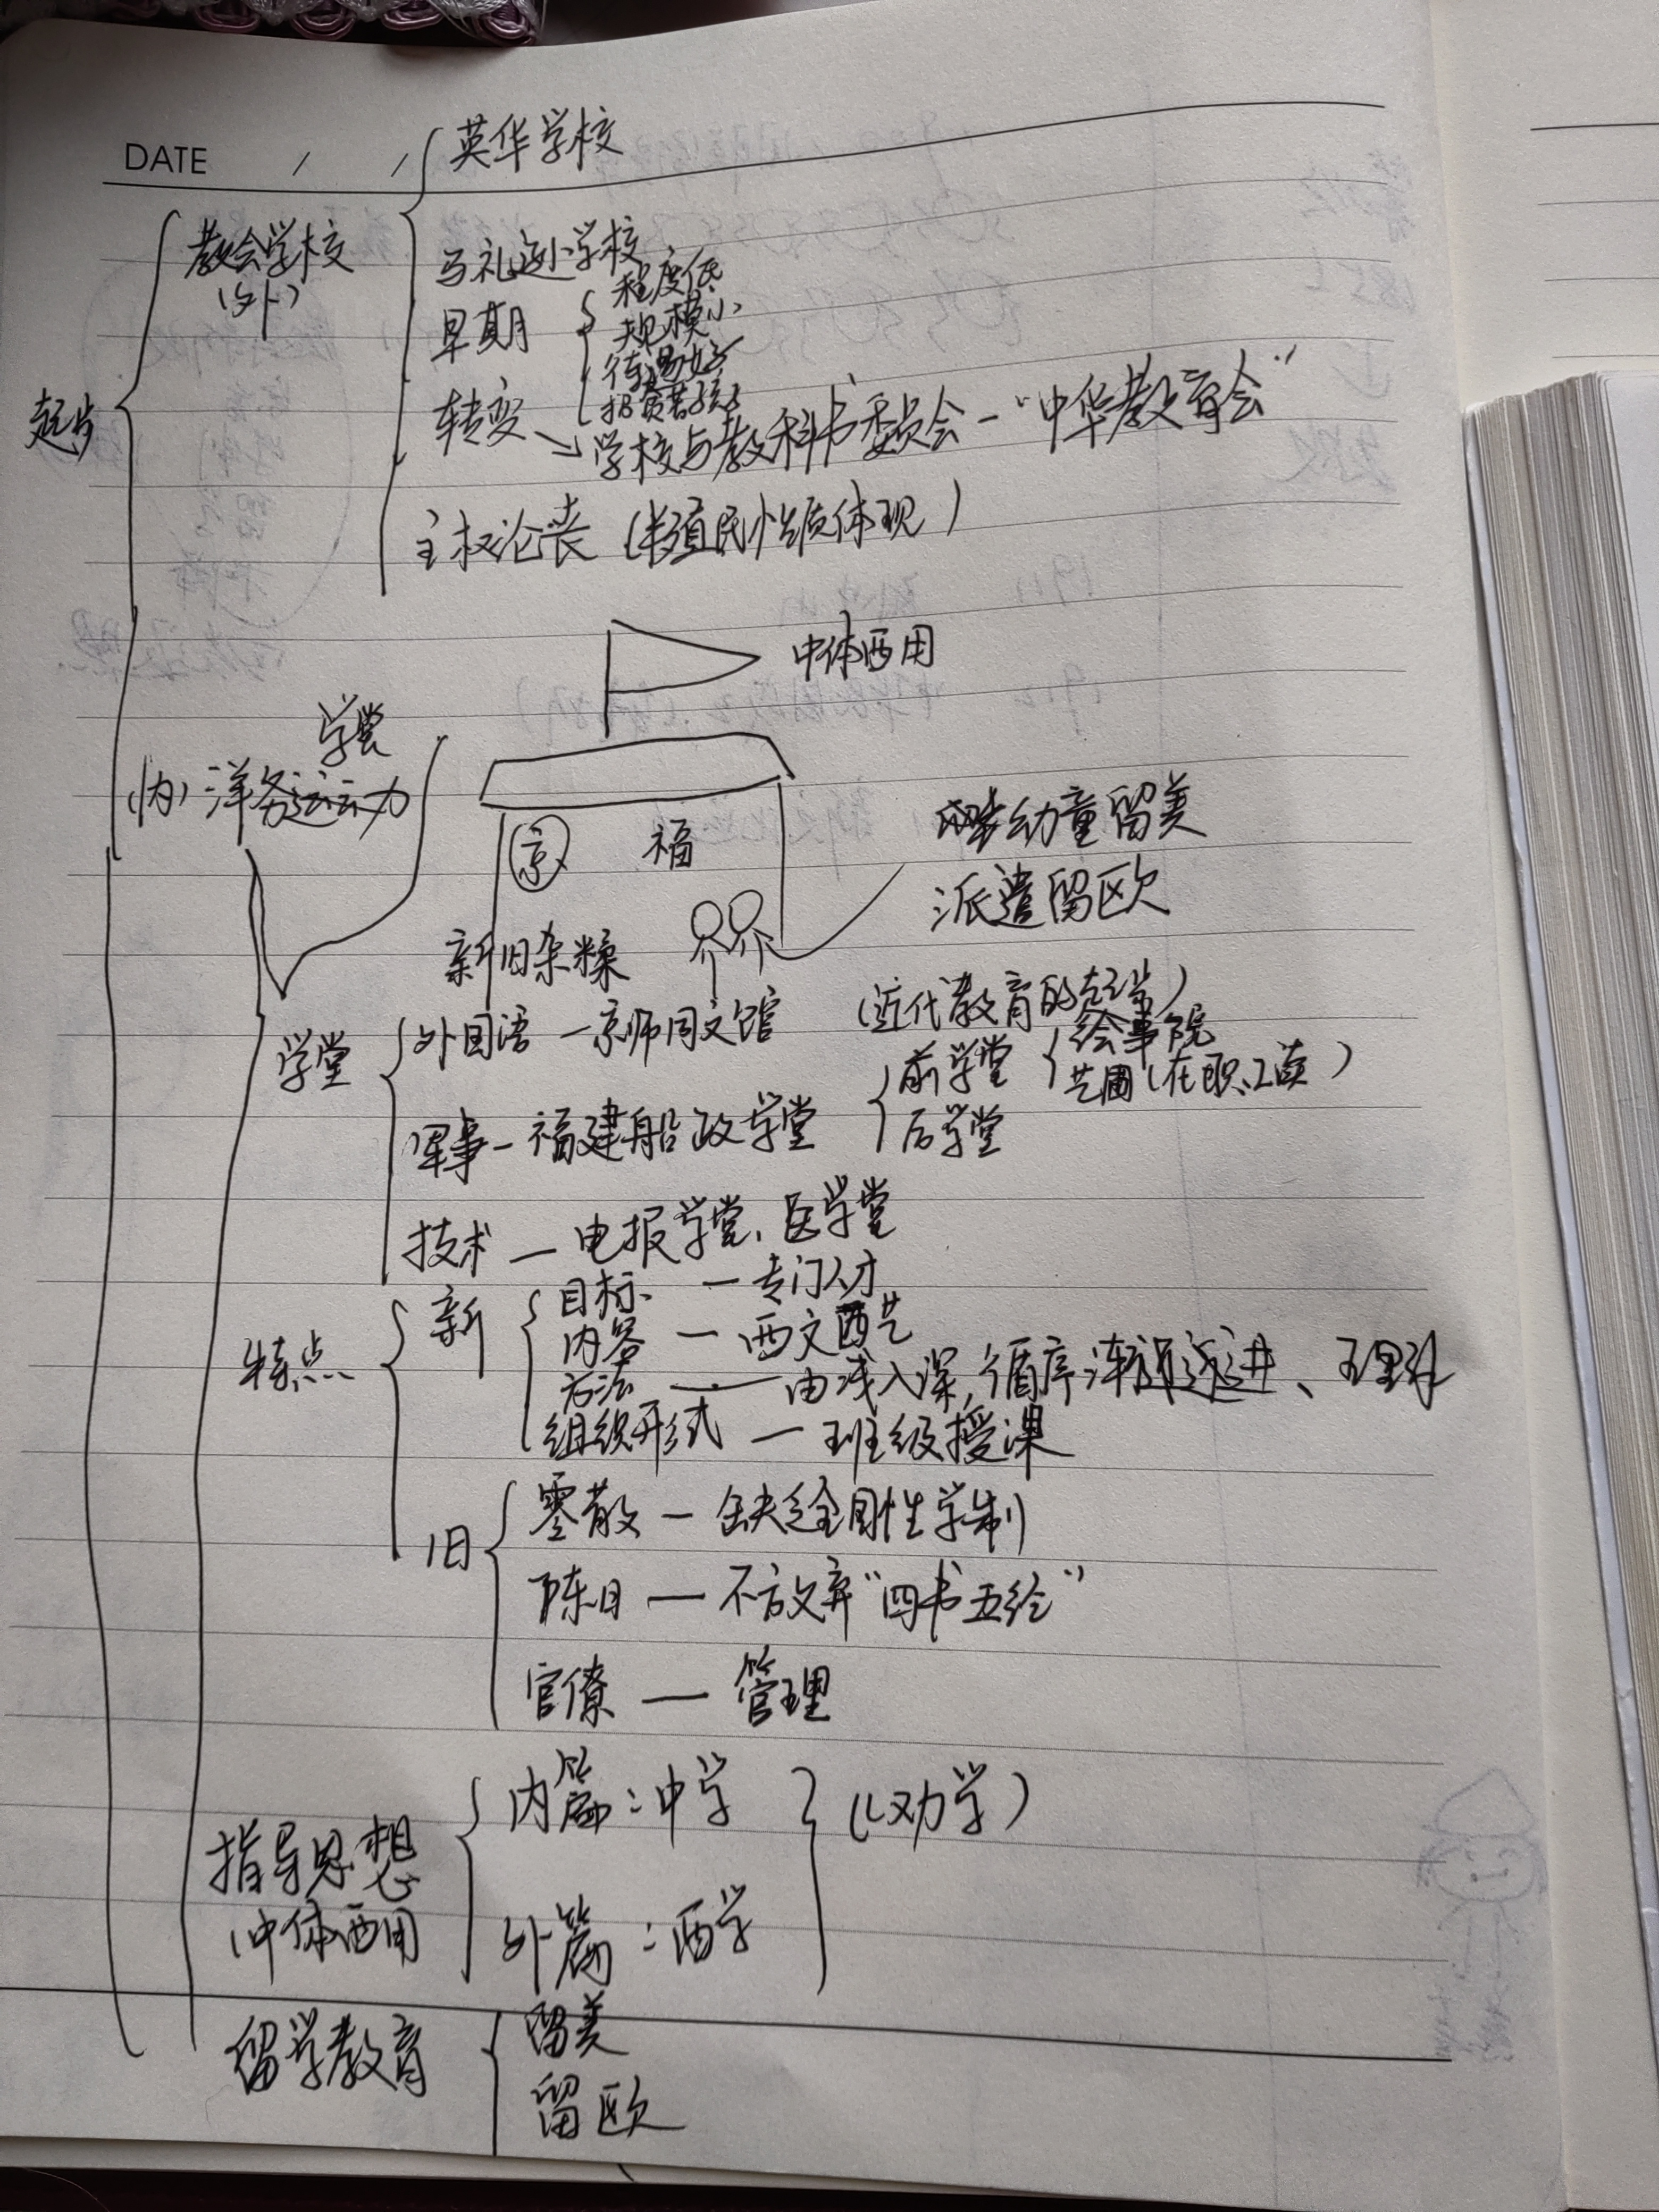 DATE / /
英华学校
教会学校
(外)
马礼逊小学校
早期
程度低
规模小
待遇好
招贫苦孩子
起步
转变
学校与教科书委员会-“中华教育会”
主权沦丧(半殖民性质体现)
中体西用
学堂
(内)洋务运动
京
福
幼童留美
派遣留欧
新旧杂糅
学堂
外国语-京师同文馆
(近代教育的起步)
军事-福建船政学堂
前学堂
绘事院
艺圃(在职、工读)
后学堂
技术-电报学堂、医学堂
特点
新
目标-专门人才
内容-西文西艺
方法-由浅入深,循序渐进、理
组织形式-班级授课
旧
零散-缺乏全国性学制
陈旧-不放弃“四书五经”
官僚-管理
指导思想
(中体西用
内篇:中学
外篇:西学
(《劝学)
留学教育
留美
留欧